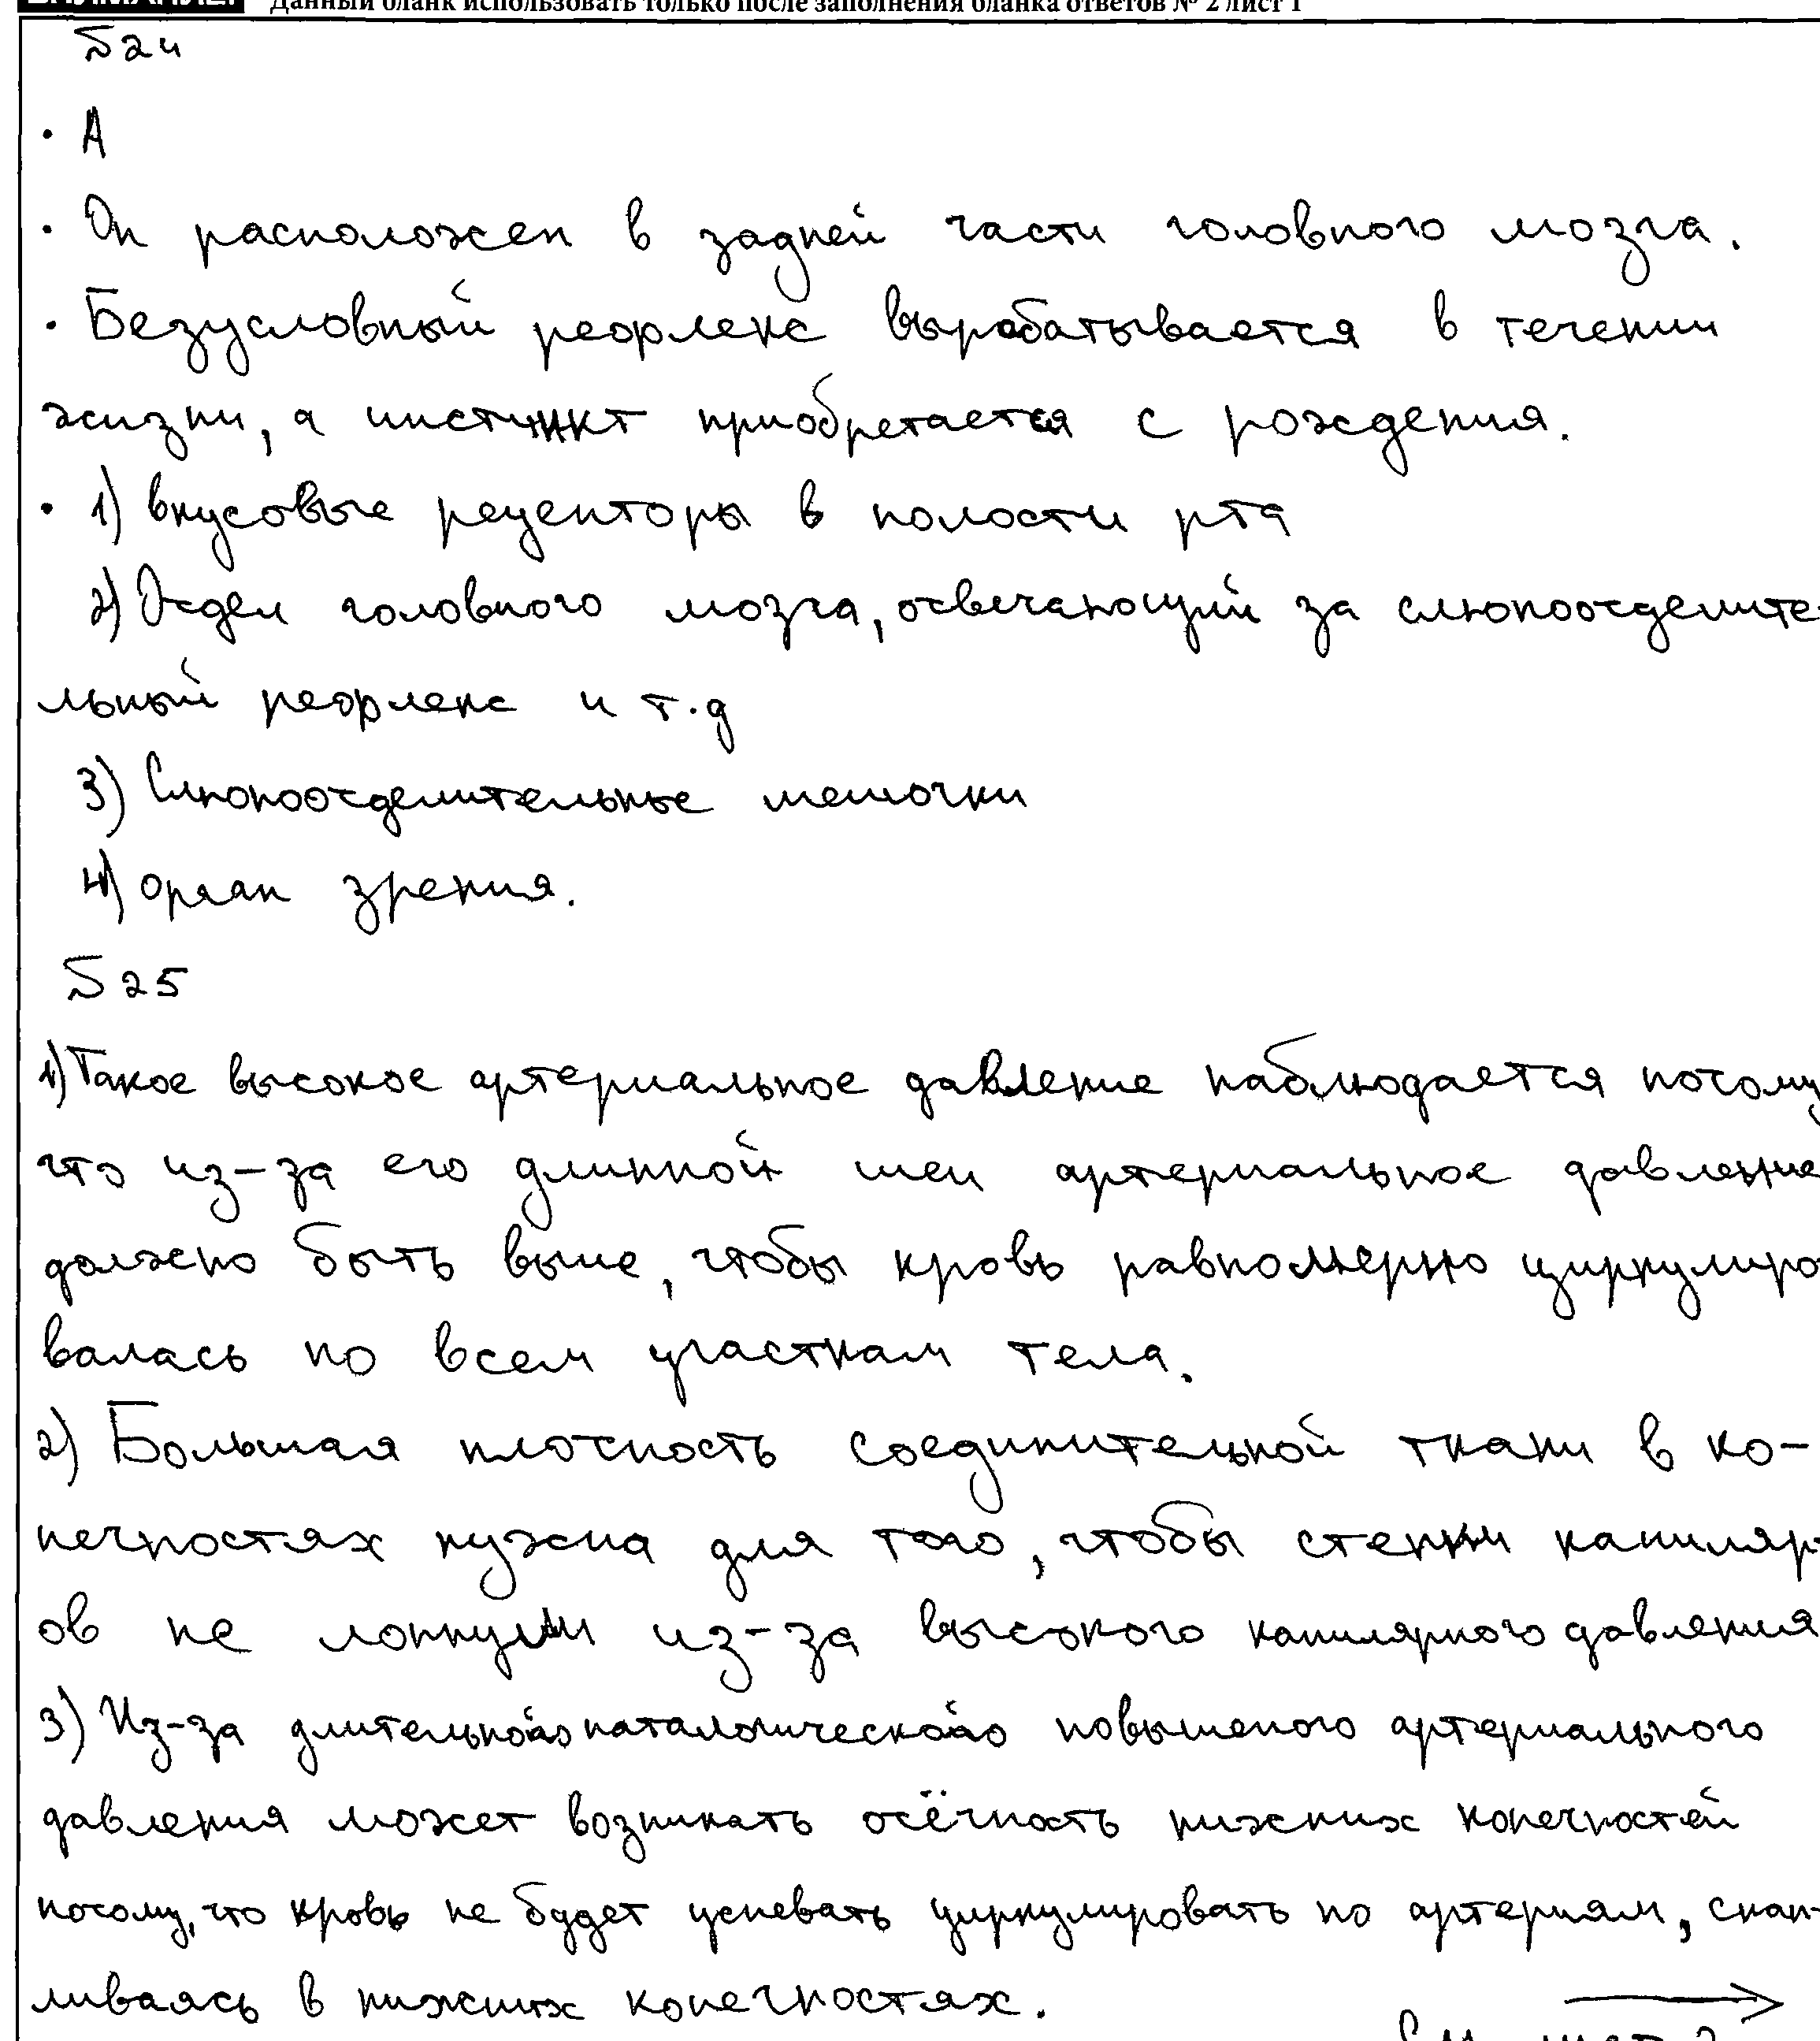 Данный бланк использовать только после заполнения бланка ответов № 2 лист 1
№24
· А
· Он расположен в задней части головного мозга.
· Безусловный рефлекс вырабатывается в течении
жизни, а инстинкт приобретается с рождения.
· 1) вкусовые рецепторы в полости рта
2) Отдел головного мозга, отвечающий за слюноотделите-
льный рефлекс и т.д
3) Слюноотделительные мешочки
4) орган зрения.
№25
1) Такое высокое артериальное давление наблюдается потому
что из-за его длинной шеи артериальное давление
должно быть выше, чтобы кровь равномерно циркулиро
валась по всем участкам тела.
2) Большая плотность соединительной ткани в ко-
нечностях нужна для того, чтобы стенки капиляр-
ов не лопнули из-за высокого капилярного давления
3) Из-за длительного паталогического повышеного артериального
давления может возникать отёчность нижних конечностей
потому, что кровь не будет успевать циркулировать по артериям, скап-
ливаясь в нижних конечностях.